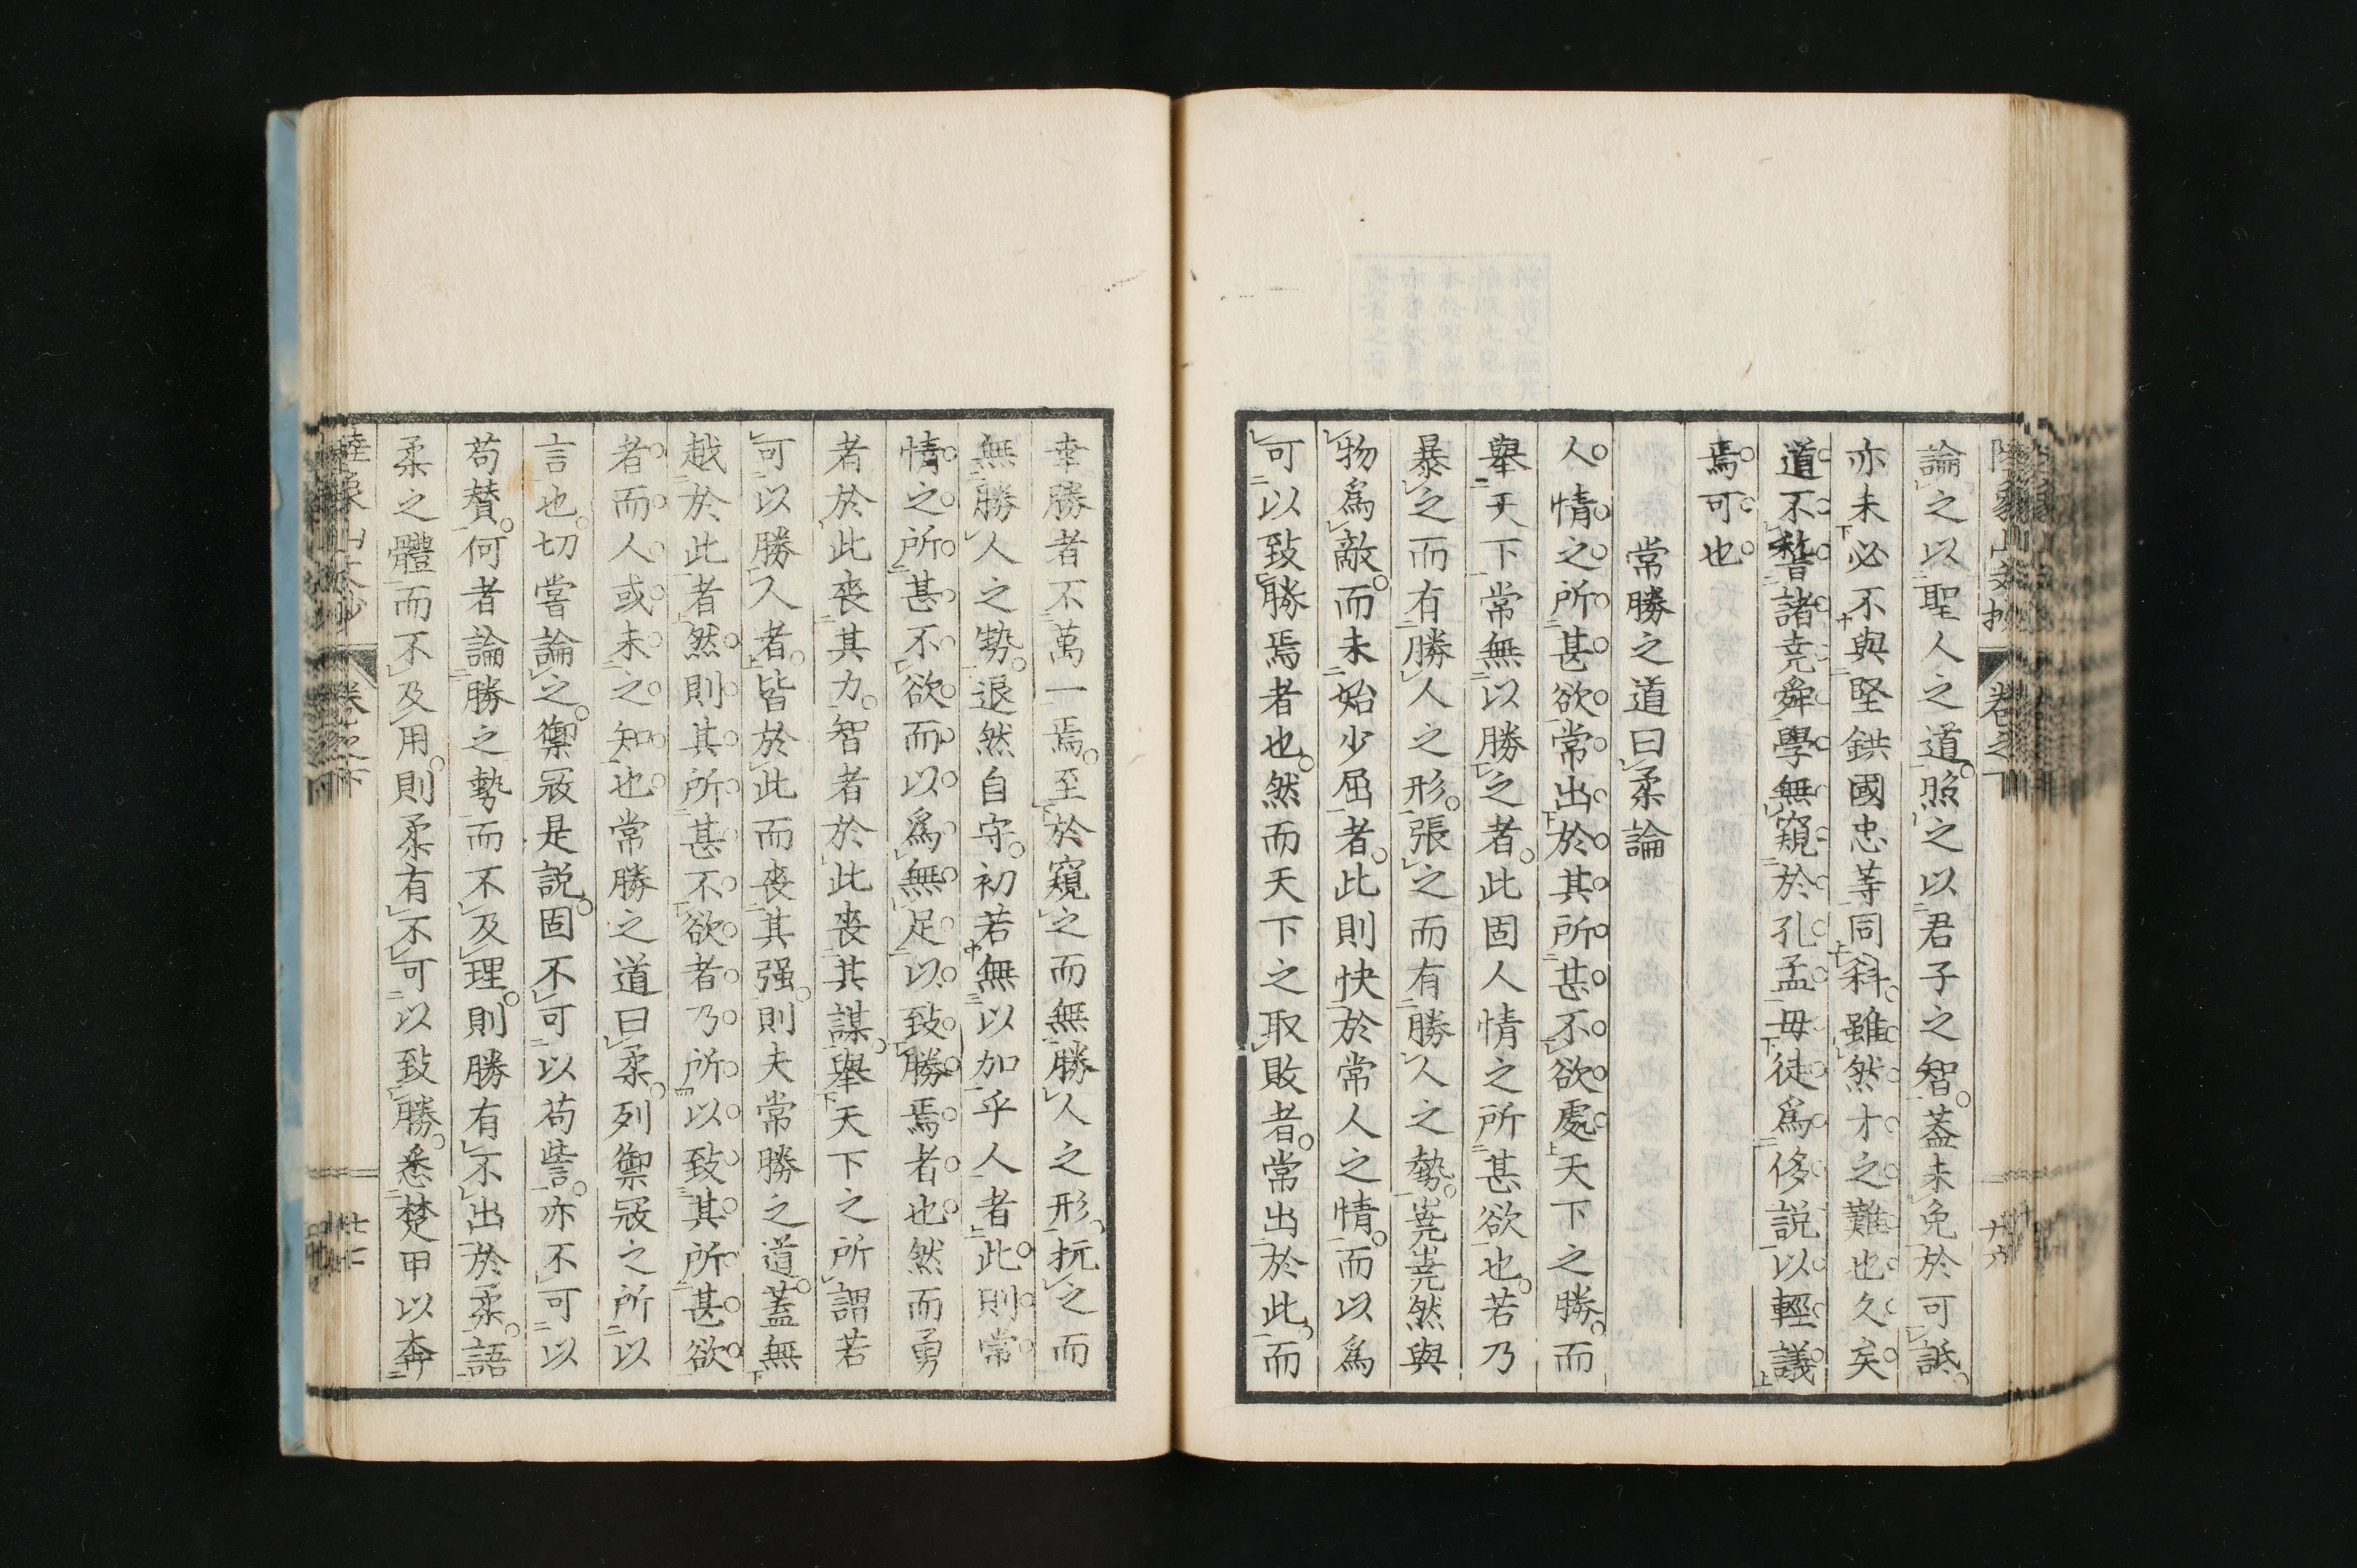 論之以聖人之道。照之以君子之智。蓋未免於可詆。
亦未必不與堅鉷國忠等同科。雖然才之難也久矣
道不稽諸堯舜學無窺於孔孟毋徒爲侈説以輕議
焉可也
常勝之道曰柔論
人情之所甚欲常出於其所甚不欲處天下之勝。而
舉天下常無以勝之者。此固人情之所甚欲也。若乃
暴之而有勝人之形。張之而有勝人之勢。嶤嶤然與
物爲敵。而未始少屈者。此則快於常人之情。而以爲
可以致勝焉者也。然而天下之取敗者。常出於此。而
幸勝者不萬一焉。至於窺之而無勝人之形。抗之而
無勝人之勢。退然自守。初若無以加乎人者此則常
情之所甚不欲而以爲無足以致勝焉者也然而勇
者於此喪其力。智者於此喪其謀。舉天下之所謂若
可以勝人者。皆於此而喪其强。則夫常勝之道。蓋無
越於此者然則其所甚不欲者乃所以致其所甚欲
者而人或未之知也常勝之道曰柔。列禦寇之所以
言也。切嘗論之。禦寇是説。固不可以苟訾。亦不可以
苟贊。何者論勝之勢而不及理。則勝有不出於柔。語
柔之體而不及用。則柔有不可以致勝。悉楚甲以奔
陸象山文抄
卷之下